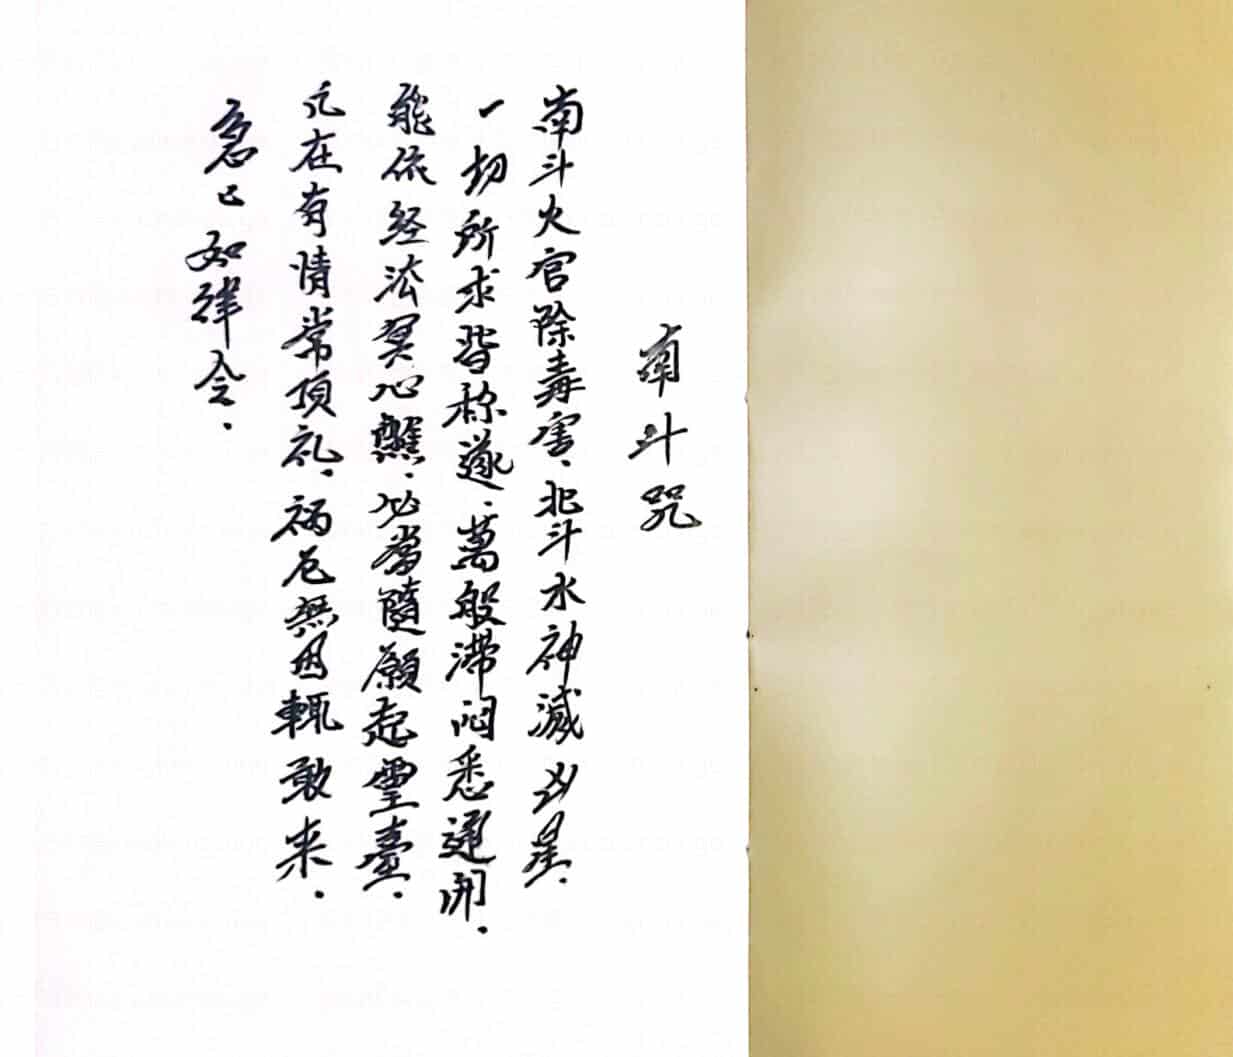 南斗咒
南斗火官除毒害、北斗水神滅凶星、
一切所求皆称遂、萬般滞闷悉通開、
能依经法冥心醮、必當隨願起靈臺、
凡在有情常顶礼、祸厄無因輒敢来、
急己如律令、